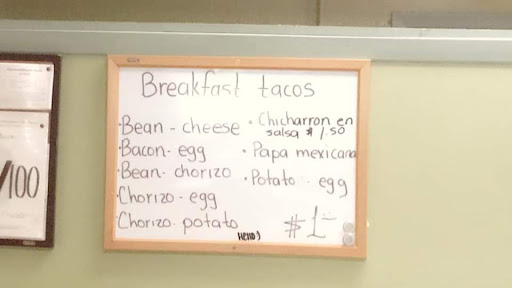 Breakfast tacos
· Bean - cheese
· Bacon - egg
· Bean - chorizo
· Chorizo - egg
· Chorizo - potato
· Chicharron en
salsa $1.50
· Papa mexicana
· Potato - egg
$1
Hello :)
/100